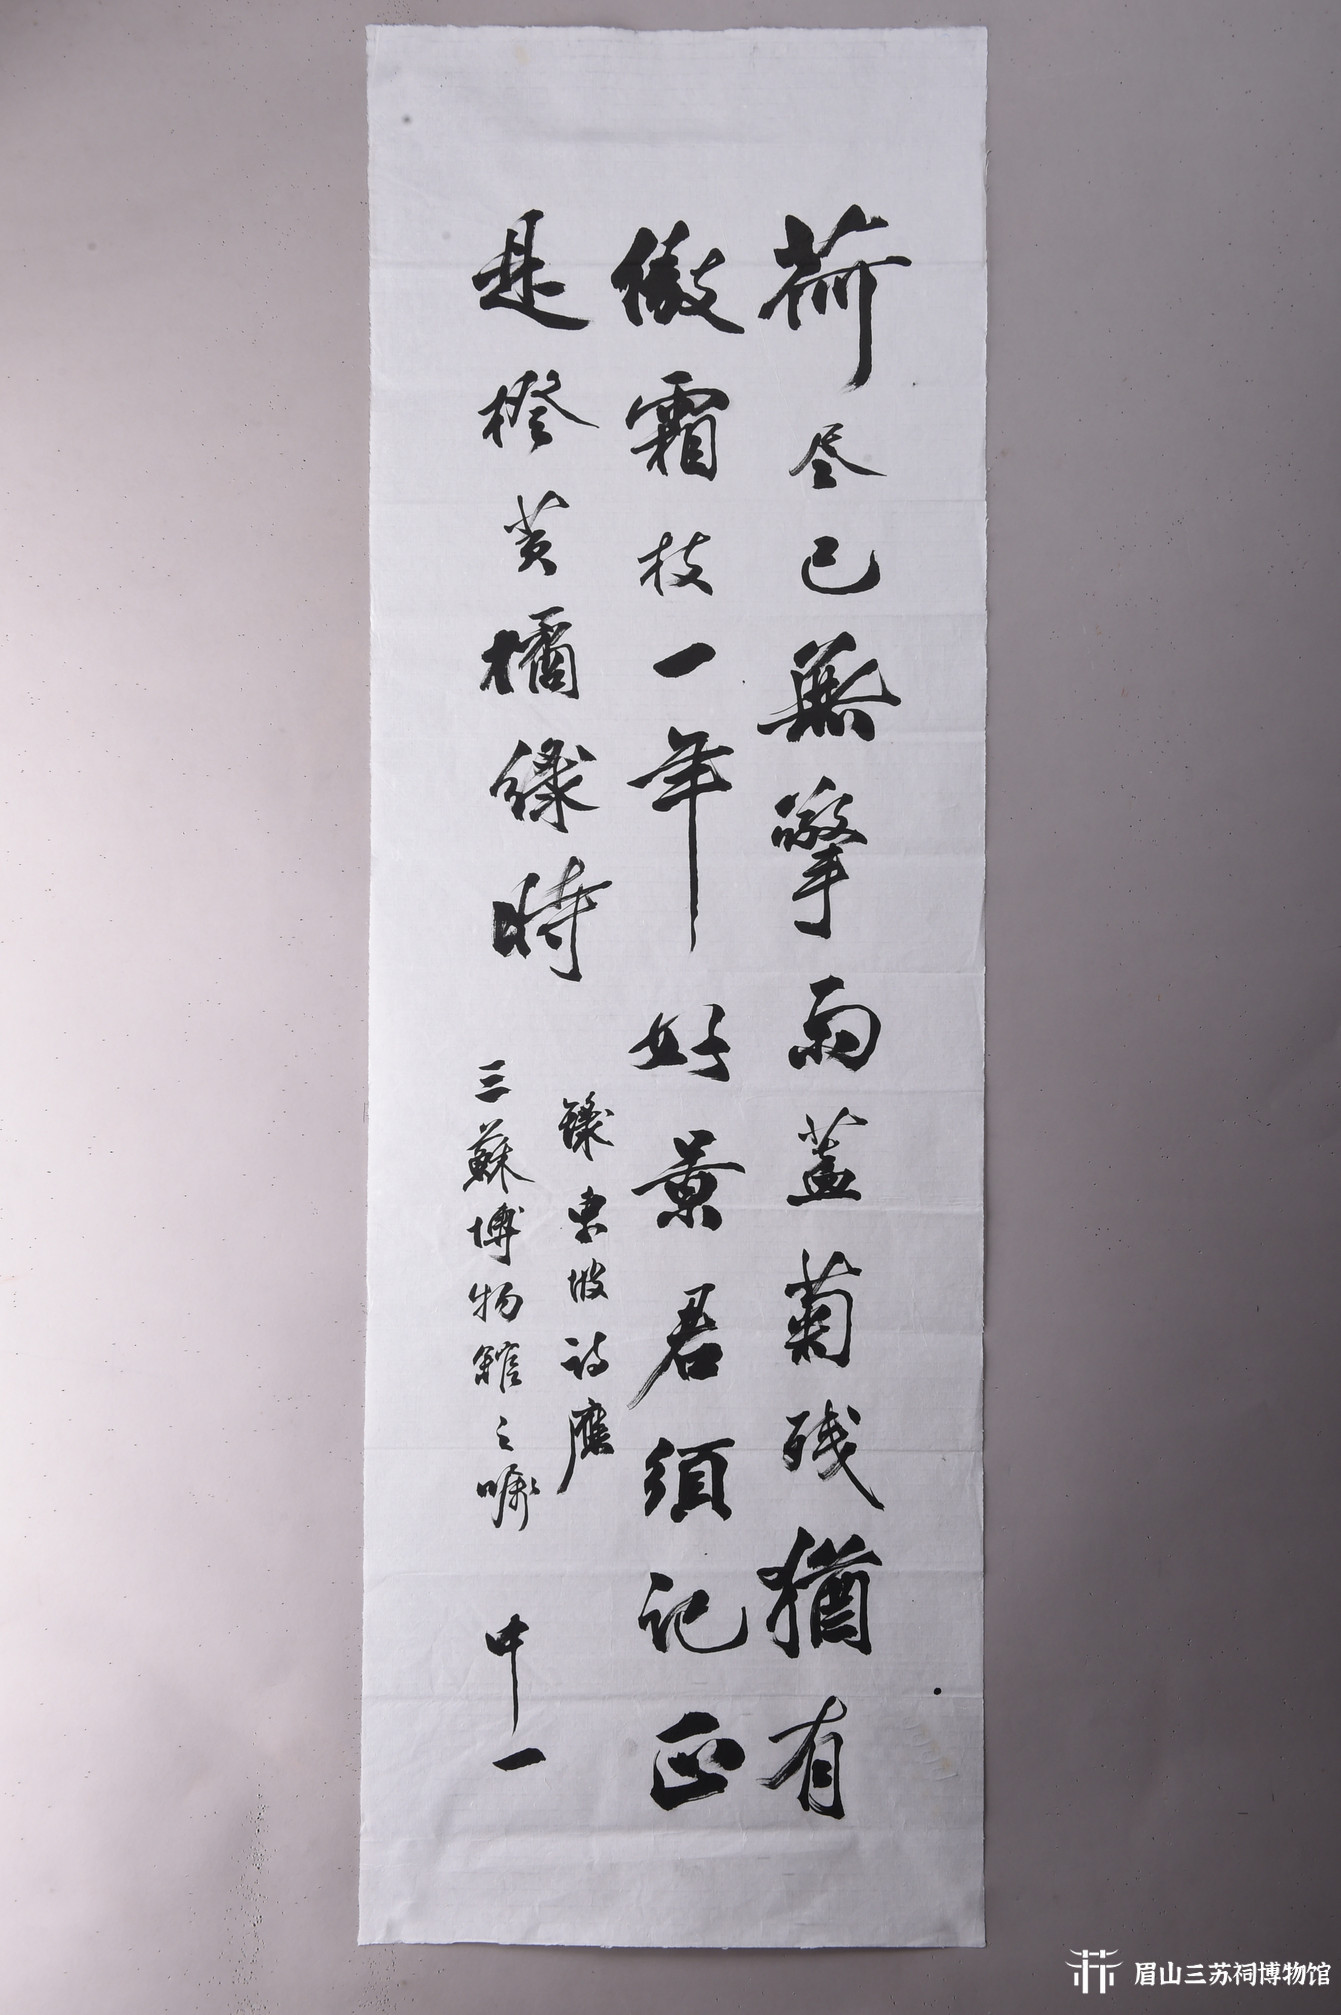 荷尽已無擎雨蓋菊残猶有
傲霜枝一年好景君須记正
是橙黄橘绿時
録東坡诗應
三蘇博物館之嘱
中一
眉山三苏祠博物馆